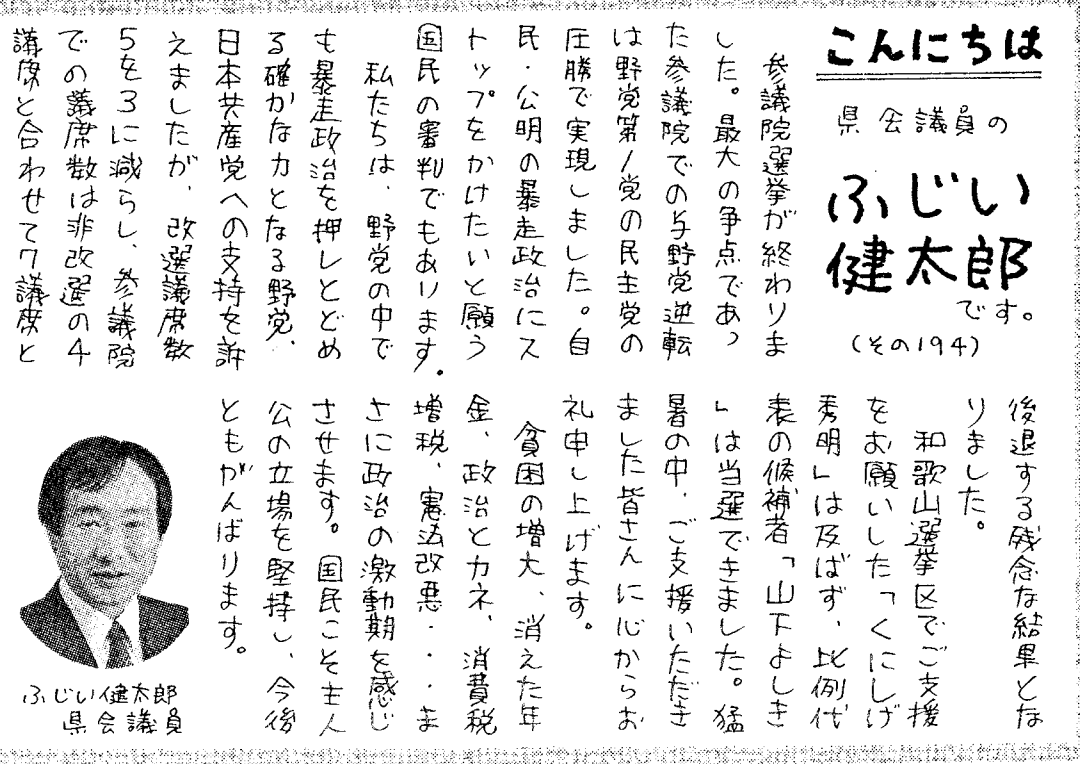 こんにちは
県会議員の
ふじい
健太郎
です。
(その194)
参議院選挙が終わりま
した。最大の争点であっ
た参議院での与野党逆転
は野党第1党の民主党の
圧勝で実現しました。自
民・公明の暴走政治にス
トップをかけたいと願う
国民の審判でもあります。
私たちは、野党の中で
も暴走政治を押しとどめ
る確かな力となる野党、
日本共産党への支持を訴
えましたが、改選議席数
5を3に減らし、参議院
での議席数は非改選の4
議席と合わせて7議席と
後退する残念な結果とな
りました。
和歌山選挙区でご支援
をお願いした「くにしげ
秀明」は及ばず、比例代
表の候補者「山下よしき
」は当選できました。猛
暑の中、ご支援いただき
ました皆さんに心からお
礼申し上げます。
貧困の増大、消えた年
金、政治とカネ、消費税
増税、憲法改悪・・・ま
さに政治の激動期を感じ
させます。国民こそ主人
公の立場を堅持し、今後
ともがんばります。
ふじい健太郎
県会議員